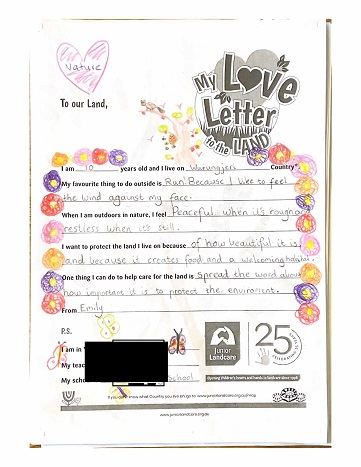 Nature
My Love Letter to the LAND
To our Land,
I am 10 years old and I live on Wurungjeri Country*
My favourite thing to do outside is Run! Because I like to feel
the wind against my face.
When I am outdoors in nature, I feel Peaceful when it's rough and
restless when it's still.
I want to protect the land I live on because of how beautiful it is
and because it creates food and a welcoming habitat.
One thing I can do to help care for the land is spread the word about
how important it is to protect the enviroment.
From Emily
P.S.
I am in
My teac
My scho School
Junior Landcare
25 YEARS OF CELEBRATING
Inspiring children's hearts and hands in landcare since 1998
*If you don't know what Country you live on go to www.juniorlandcare.org.au/map
www.juniorlandcare.org.au